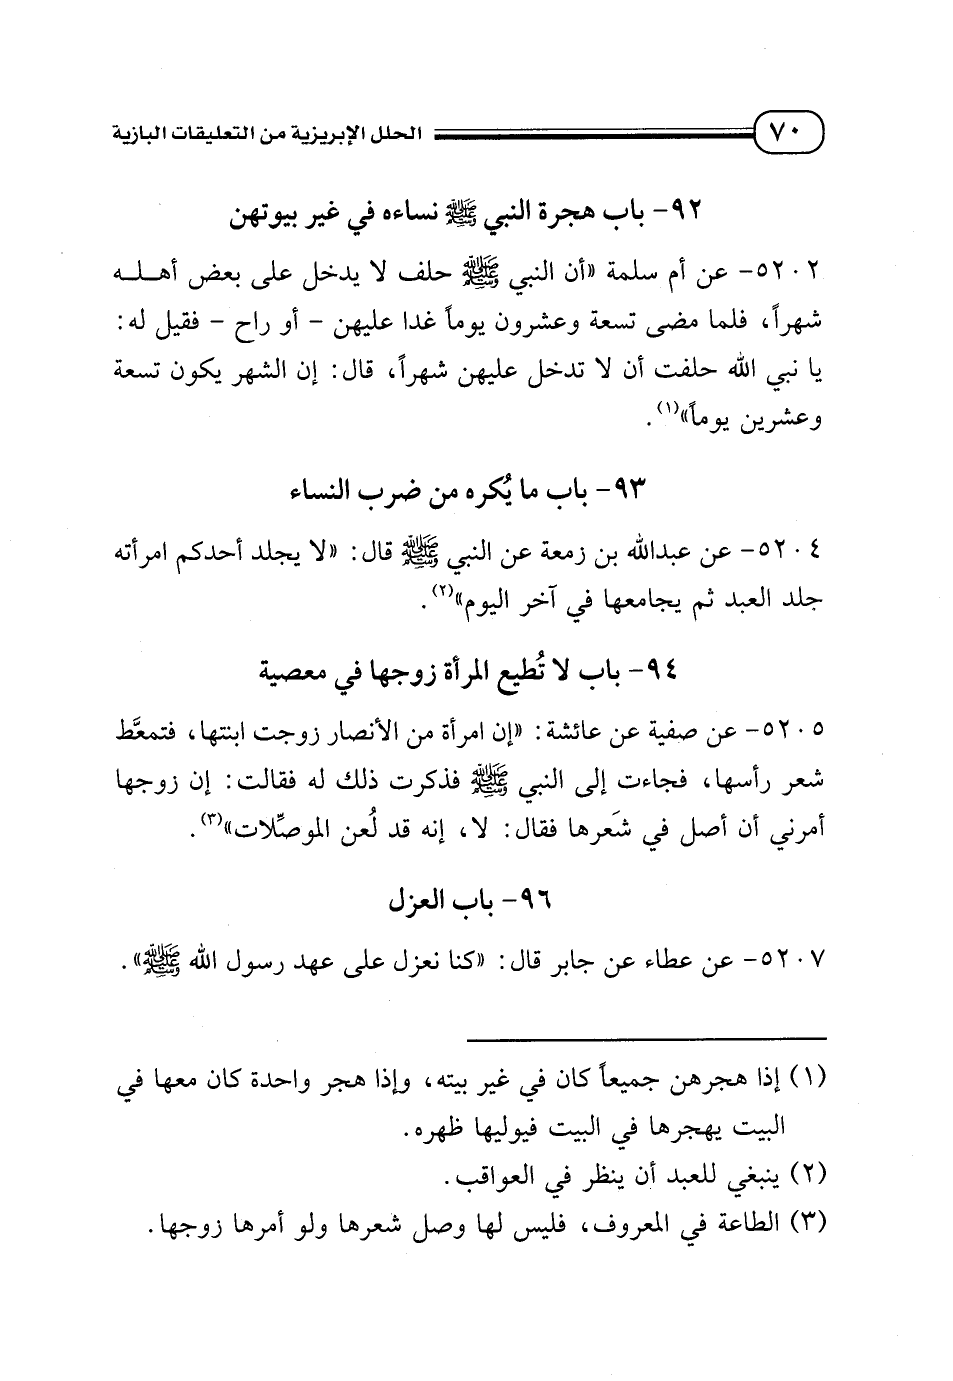 ٧٠ الحلل الإبريزية من التعليقات البازية
٩٢- باب هجرة النبي ﷺ نساءه في غير بيوتهن
٥٢٠٢- عن أم سلمة «أن النبي ﷺ حلف لا يدخل على بعض أهله
شهراً، فلما مضى تسعة وعشرون يوماً غدا عليهن - أو راح - فقيل له:
يا نبي الله حلفت أن لا تدخل عليهن شهراً، قال: إن الشهر يكون تسعة
وعشرين يوماً»(١).
٩٣- باب ما يُكره من ضرب النساء
٥٢٠٤- عن عبدالله بن زمعة عن النبي ﷺ قال: «لا يجلد أحدكم امرأته
جلد العبد ثم يجامعها في آخر اليوم»(٢).
٩٤- باب لا تُطيع المرأة زوجها في معصية
٥٢٠٥- عن صفية عن عائشة: «إن امرأة من الأنصار زوجت ابنتها، فتمعَّط
شعر رأسها، فجاءت إلى النبي ﷺ فذكرت ذلك له فقالت: إن زوجها
أمرني أن أصل في شَعرها فقال: لا، إنه قد لُعن الموصِّلات»(٣).
٩٦- باب العزل
٥٢٠٧- عن عطاء عن جابر قال: «كنا نعزل على عهد رسول الله ﷺ».
(١) إذا هجرهن جميعاً كان في غير بيته، وإذا هجر واحدة كان معها في
البيت يهجرها في البيت فيوليها ظهره.
(٢) ينبغي للعبد أن ينظر في العواقب.
(٣) الطاعة في المعروف، فليس لها وصل شعرها ولو أمرها زوجها.